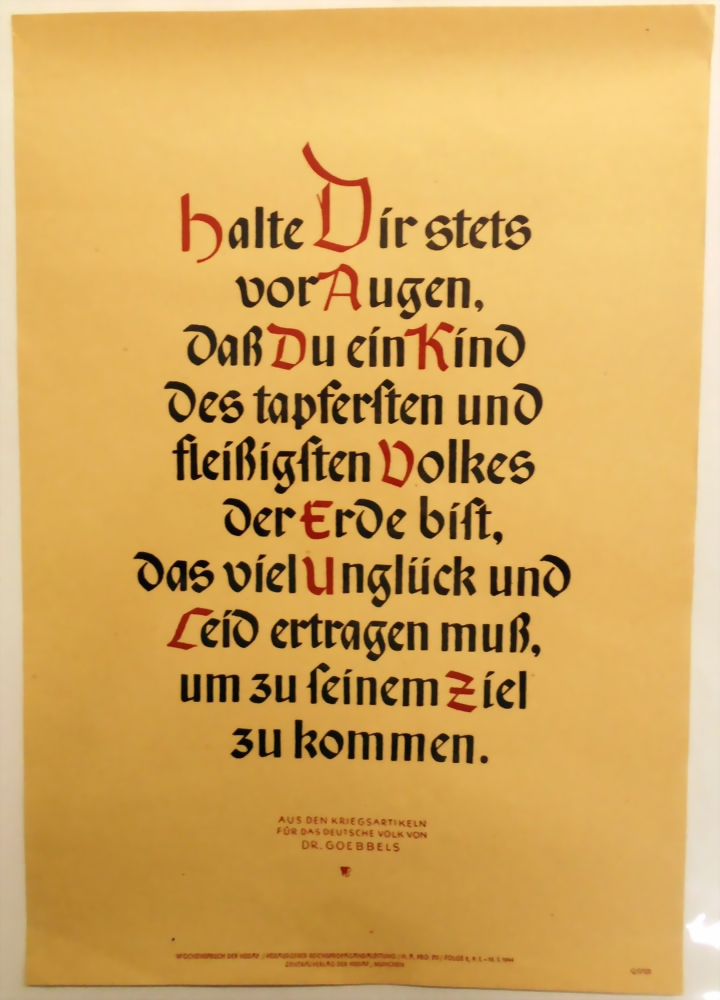 Halte Dir stets
vor Augen,
daß Du ein Kind
des tapferſten und
fleißigſten Volkes
der Erde biſt,
das viel Unglück und
Leid ertragen muß,
um zu ſeinem Ziel
zu kommen.
AUS DEN KRIEGSARTIKELN
FÜR DAS DEUTSCHE VOLK VON
DR. GOEBBELS
WOCHENSPRUCH DER NSDAP / HERAUSGEBER REICHSPROPAGANDALEITUNG / FOLGE 1944
ZENTRALVERLAG DER NSDAP., MÜNCHEN